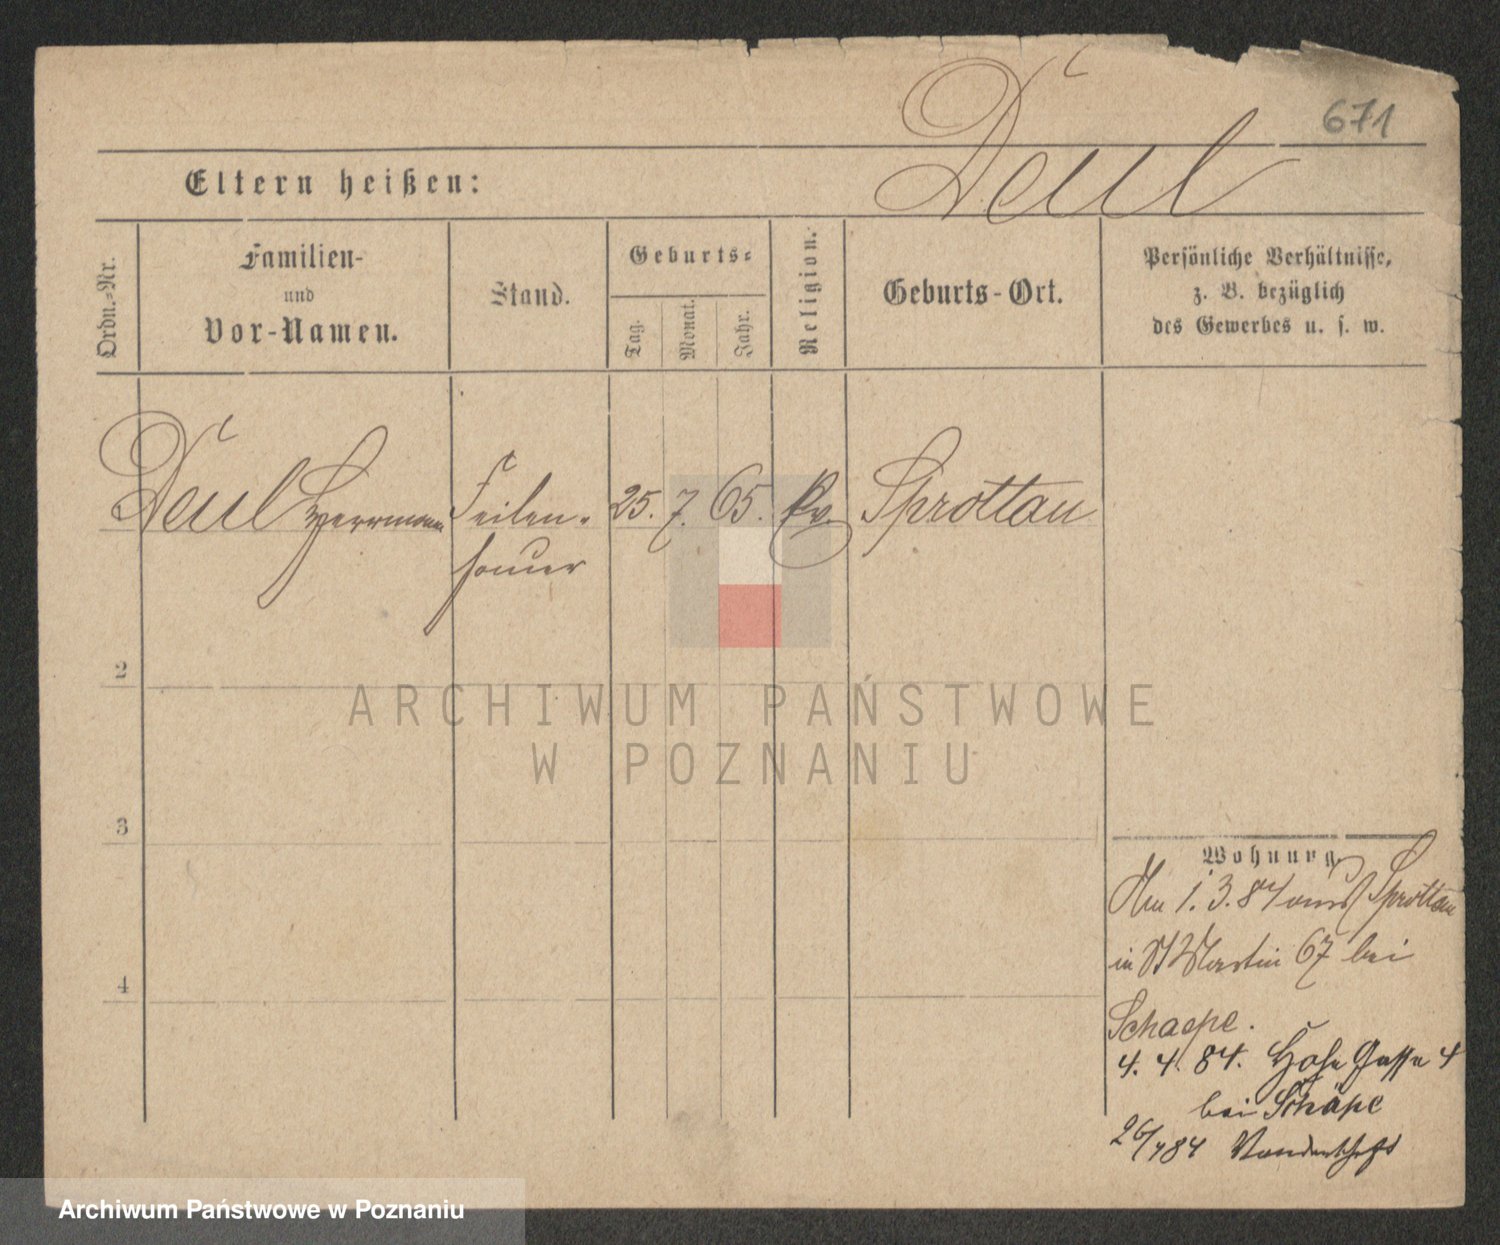 671
Deul
Eltern heißen:
Ordn.-Nr.
Familien-
und
Vor-Namen.
Stand.
Geburts-
Tag.
Monat.
Jahr.
Religion.
Geburts-Ort.
Persönliche Verhältnisse,
z. B. bezüglich
des Gewerbes u. s. w.
Deul Herrmann
Feilen-
hauer
25.
7.
65.
ev.
Sprottau
2
3
4
Wohnung.
Am 1.3.84 aus Sprottau
in St Martin 67 bei
Schaepe.
4. 4. 84. Hohe Gasse 4
bei Schäpe
26/4 84 Wanderschaft
ARCHIWUM PAŃSTWOWE
W POZNANIU
Archiwum Państwowe w Poznaniu